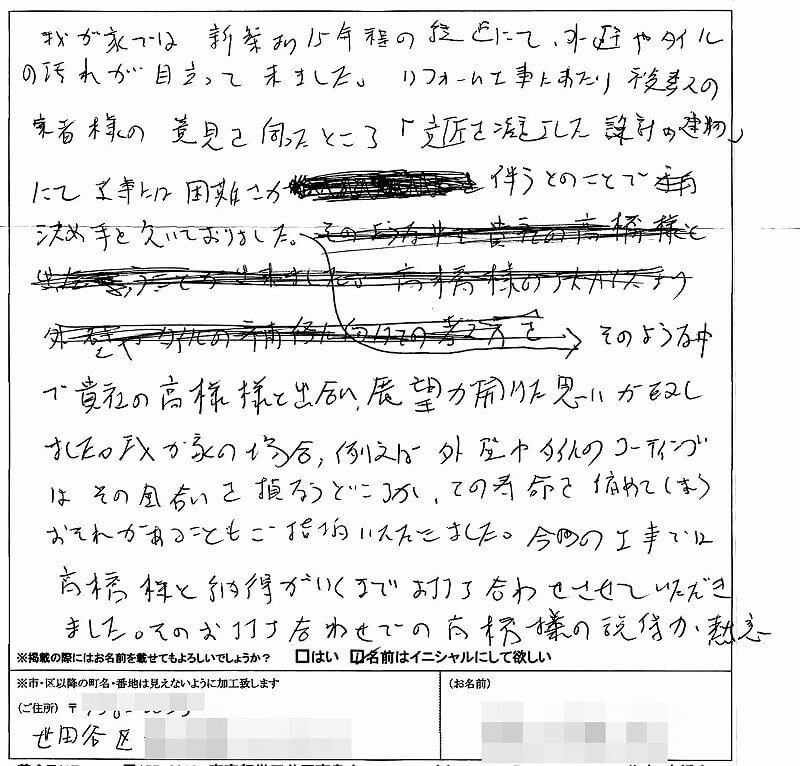 我が家では 新築より15年程の経過にて、外壁やタイル
の汚れが目立って来ました。リフォーム工事にあたり 複数の
業者様の意見を伺ったところ「意匠を凝らした設計の建物」
にて 工事には困難さが 伴うとのことで
決め手を欠いておりました。そのような中で貴社の高橋様と
高橋様の
外壁やタイルの 補修に向けての考え方を そのような中
で貴社の高様様と出会い、展望が開けた思いが致し
ました。我が家の場合、例えば 外壁やタイルのコーティング
は その風合いを損なうどころか、ての寿命を縮めてしまう
おそれがあることもご指摘いただきました。今回の工事では
高橋様と納得がいくまで お打ち合わせさせていただき
ました。そのお打ち合わせでの高橋様の説得力、熱意
※掲載の際にはお名前を載せてもよろしいでしょうか？ □はい ☑名前はイニシャルにして欲しい
※市・区以降の町名・番地は見えないように加工致します
(ご住所) 〒
世田谷区
(お名前)